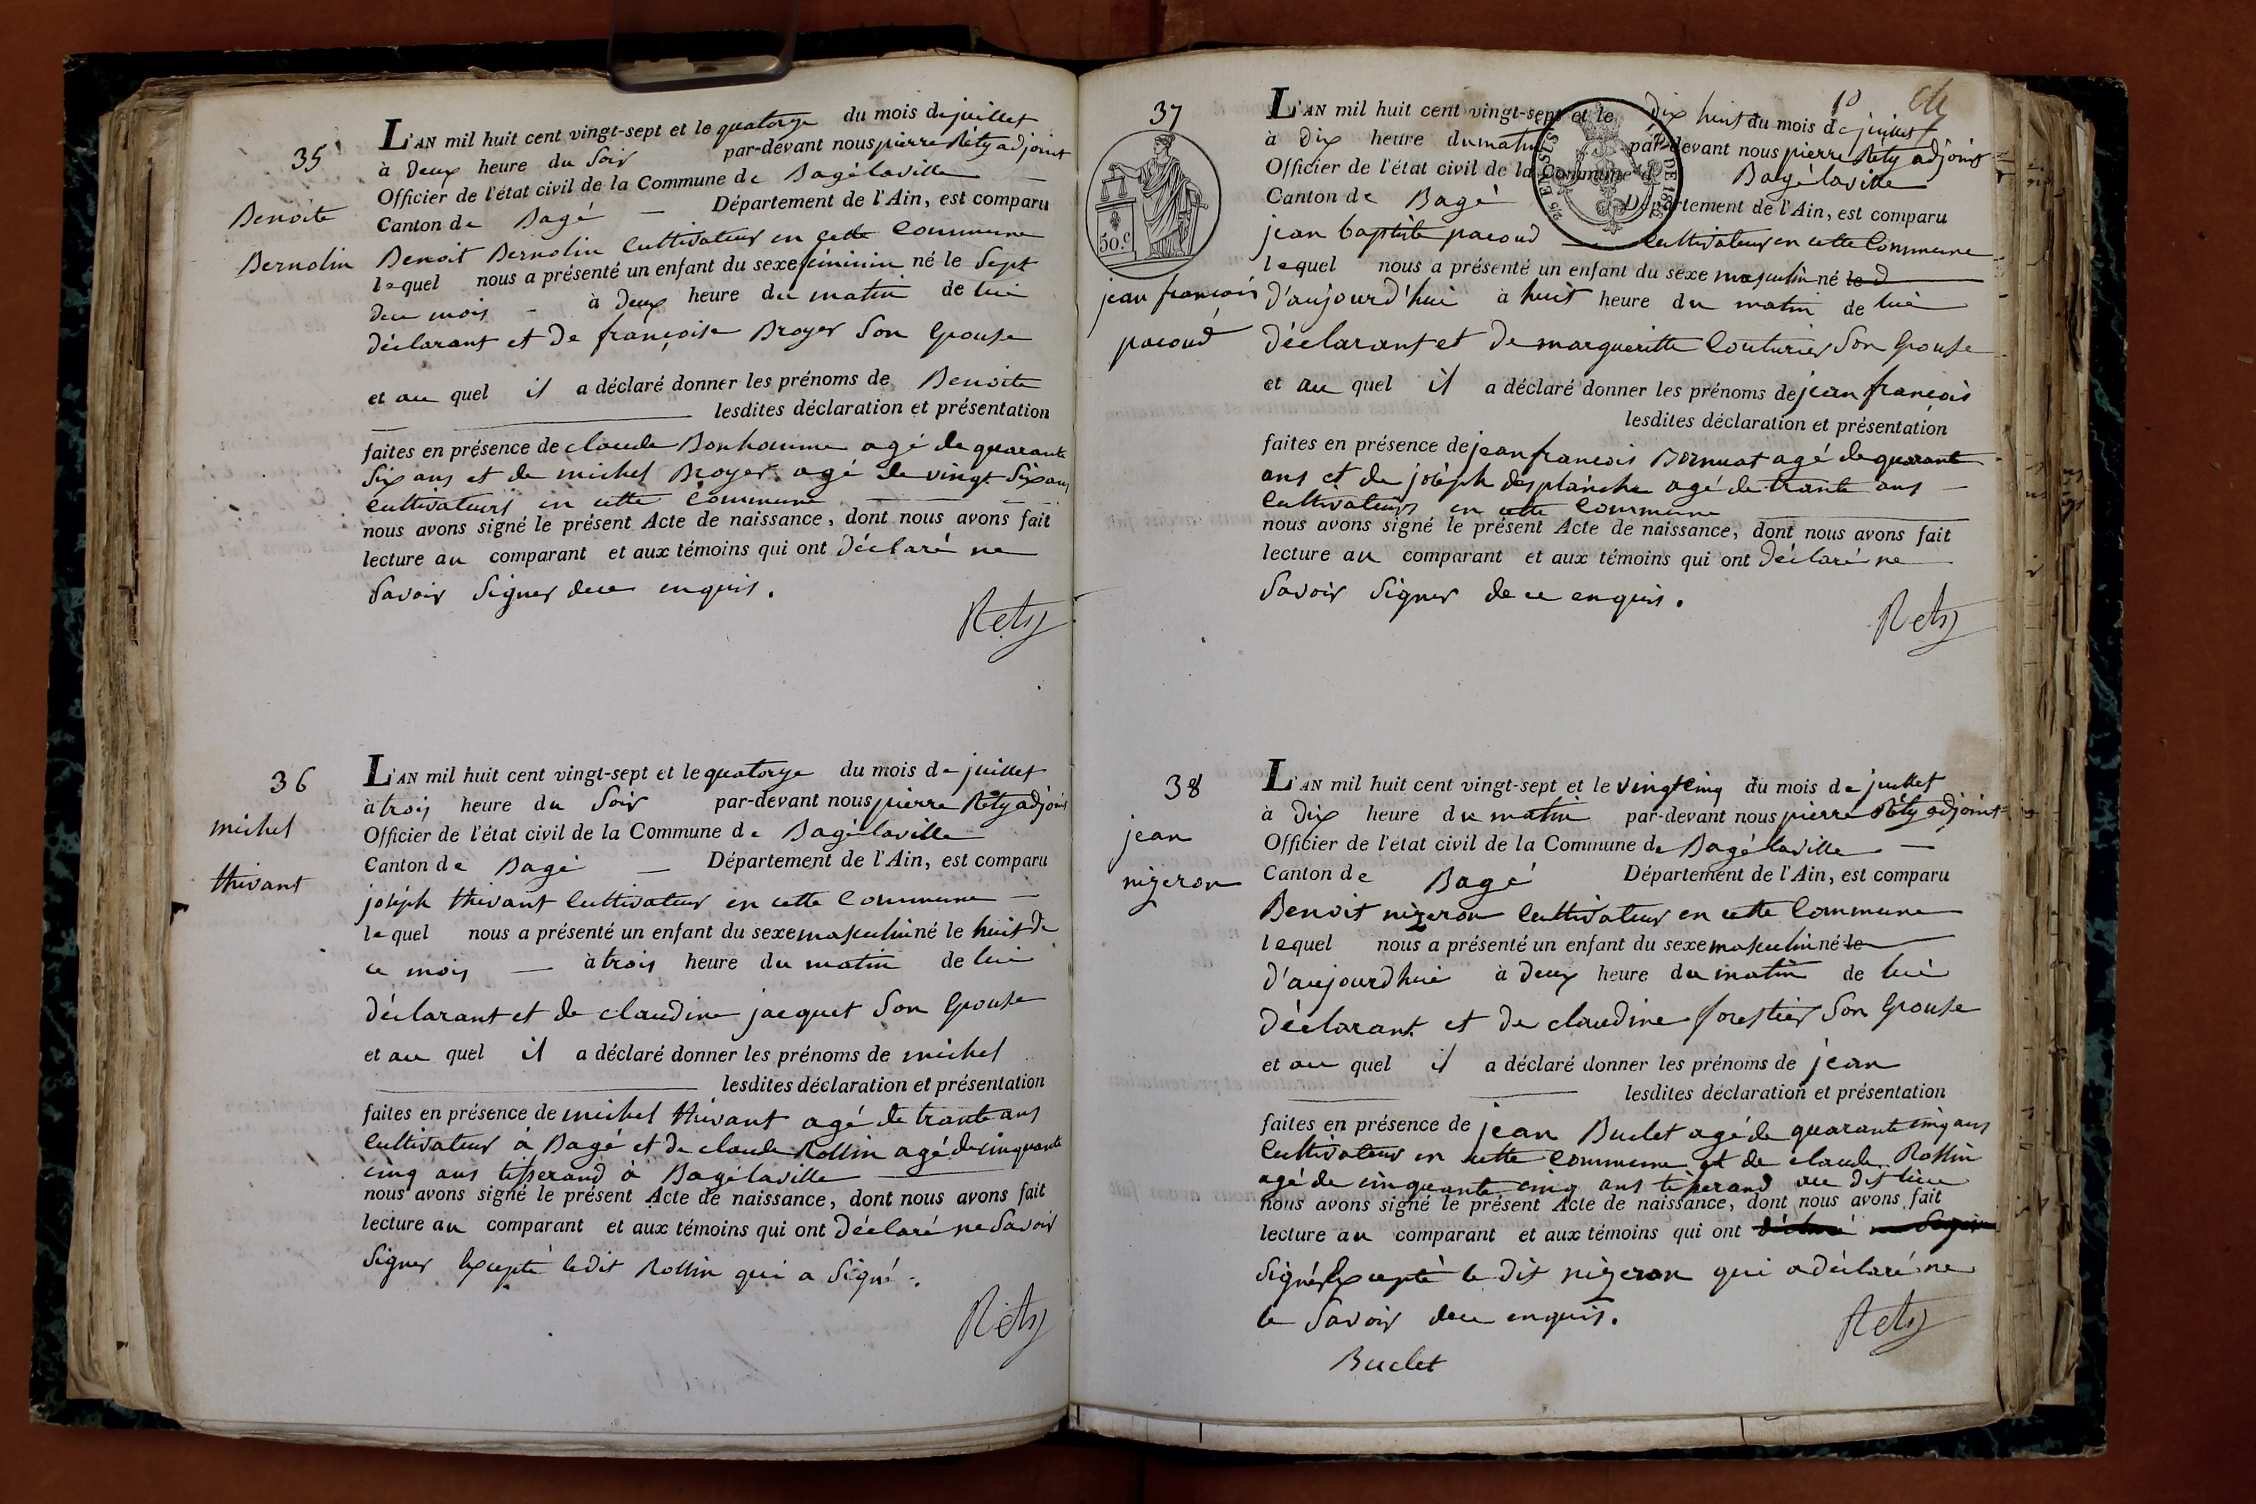 35
Benoite
Bernolin
L'AN mil huit cent vingt-sept et le quatorze du mois de juillet
à deux heure du Soir par-devant nous pierre Réty adjoint
Officier de l'état civil de la Commune de Bagélaville
Canton de Bagé — Département de l'Ain, est comparu
Benoit Bernolin Cultivateur en cette Commune
lequel nous a présenté un enfant du sexe feminin né le Sept
du mois - à deux heure du matin de lui
déclarant et de françoise Broyer Son Epouse
et au quel il a déclaré donner les prénoms de Benoite
lesdites déclaration et présentation
faites en présence de claude Bonhomme agé de quarante
Six ans et de michel Broyer agé de vingt Six ans
Cultivateurs en cette Commune
nous avons signé le présent Acte de naissance, dont nous avons fait
lecture au comparant et aux témoins qui ont déclaré ne
Savoir Signer de ce enquis.
Réty
36
michel
thivant
L'AN mil huit cent vingt-sept et le quatorze du mois de juillet
à trois heure du Soir par-devant nous pierre Réty adjoint
Officier de l'état civil de la Commune de Bagélaville
Canton de Bagé — Département de l'Ain, est comparu
joséph thivant Cultivateur en cette Commune —
lequel nous a présenté un enfant du sexe masculin né le huit de
ce mois — à trois heure du matin de lui
déclarant et de claudine jacquet Son Epouse
et au quel il a déclaré donner les prénoms de michel
lesdites déclaration et présentation
faites en présence de michel thivant agé de trante ans
Cultivateur à Bagé et de claude Rollin agé de cinquante
cinq ans tisserand à Bagélaville
nous avons signé le présent Acte de naissance, dont nous avons fait
lecture au comparant et aux témoins qui ont déclaré ne Savoir
Signer Excepté ledit Rollin qui a Signé.
Réty
37
50.c
jean françois
pacoud
L'AN mil huit cent vingt-sept et le dix huit du mois de juillet
à dix heure du matin par-devant nous pierre Réty adjoint
Officier de l'état civil de la Commune de Bagélaville
Canton de Bagé Département de l'Ain, est comparu
jean baptiste pacoud — Cultivateur en cette Commune
lequel nous a présenté un enfant du sexe masculin né le d
d'aujourd'hui à huit heure du matin de lui
déclarant et de margueritte Couturier Son Epouse
et au quel il a déclaré donner les prénoms de jean françois
lesdites déclaration et présentation
faites en présence de jean francois Bornuat agé de quarante
ans et de joséph desplanche agé de trante ans —
Cultivateurs en cette Commune
nous avons signé le présent Acte de naissance, dont nous avons fait
lecture au comparant et aux témoins qui ont déclaré ne
Savoir Signer de ce enquis.
Réty
38
jean
nizeron
L'AN mil huit cent vingt-sept et le vingt cinq du mois de juillet
à dix heure du matin par-devant nous pierre Réty adjoint
Officier de l'état civil de la Commune de Bagélaville —
Canton de Bagé Département de l'Ain, est comparu
Benoit nizeron Cultivateur en cette Commune
lequel nous a présenté un enfant du sexe masculin né le
d'aujourdhui à deux heure du matin de lui
déclarant et de claudine forestier Son Epouse
et au quel il a déclaré donner les prénoms de jean
lesdites déclaration et présentation
faites en présence de jean Buclet agé de quarante cinq ans
Cultivateur en cette Commune et de claude Rollin
agé de cinquante cinq ans tisserand au dit lieu
nous avons signé le présent Acte de naissance, dont nous avons fait
lecture au comparant et aux témoins qui ont
Signé Excepté le dit nizeron qui a déclaré ne
le Savoir de ce enquis.
Buclet
Réty